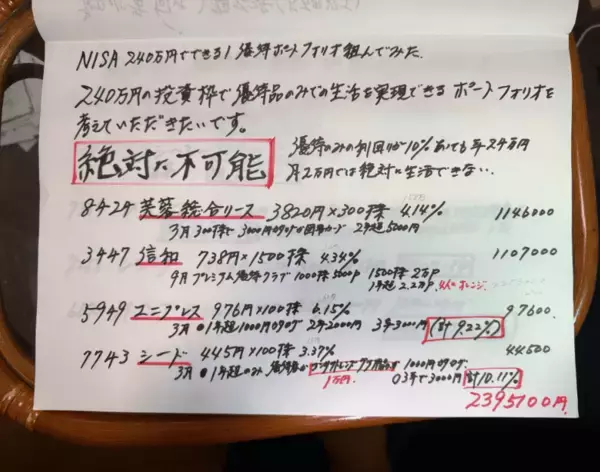 NISA 240万円でできる! 優待ポートフォリオ組んでみた
240万円の投資枠で優待品のみでの生活を実現できる ポートフォリオを
考えていただきたいです。
絶対に不可能
優待のみの利回りが10%あっても年24万円
月2万円では絶対に生活できない.
8424 芙蓉総合リース 3820円×300株 4.14% 1146000
3月 300株で 3000円カタログor図書カード 2年超5000円
3447 信和 738円×1500株 4.34% 1107000
9月 プレミアム優待クラブ 1000株5000P 1500株 2万P
1年超 2.2万P
5949 ユニプレス 976円×100株 6.15% 97600.
3月 1年超1000円カタログ 2年2000円 3年3000円 (計9.22%)
7743 シード 445円×100株 3.37% 44500
3月 1年超のみ 1000円カタログ. 3年で3000円 計10.11%
1万円
2395100円